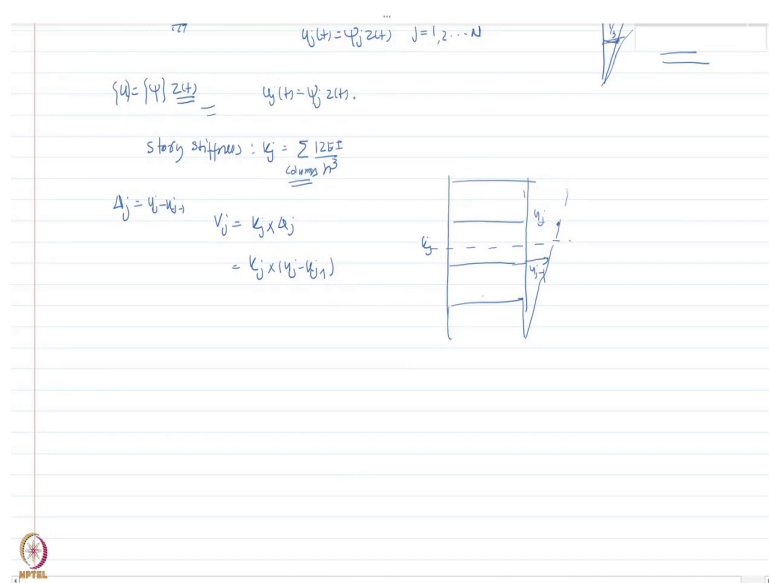 uj(t) = ψj z(t) j = 1, 2 ... N
{u} = {ψ} z(t) uj(t) = ψj z(t).
Story stiffness : kj = Σ 12EI
columns h³
Δj = uj - uj-1
Vj = kj × Δj
= kj × (uj - uj-1)
uj
kj
uj-1
NPTEL